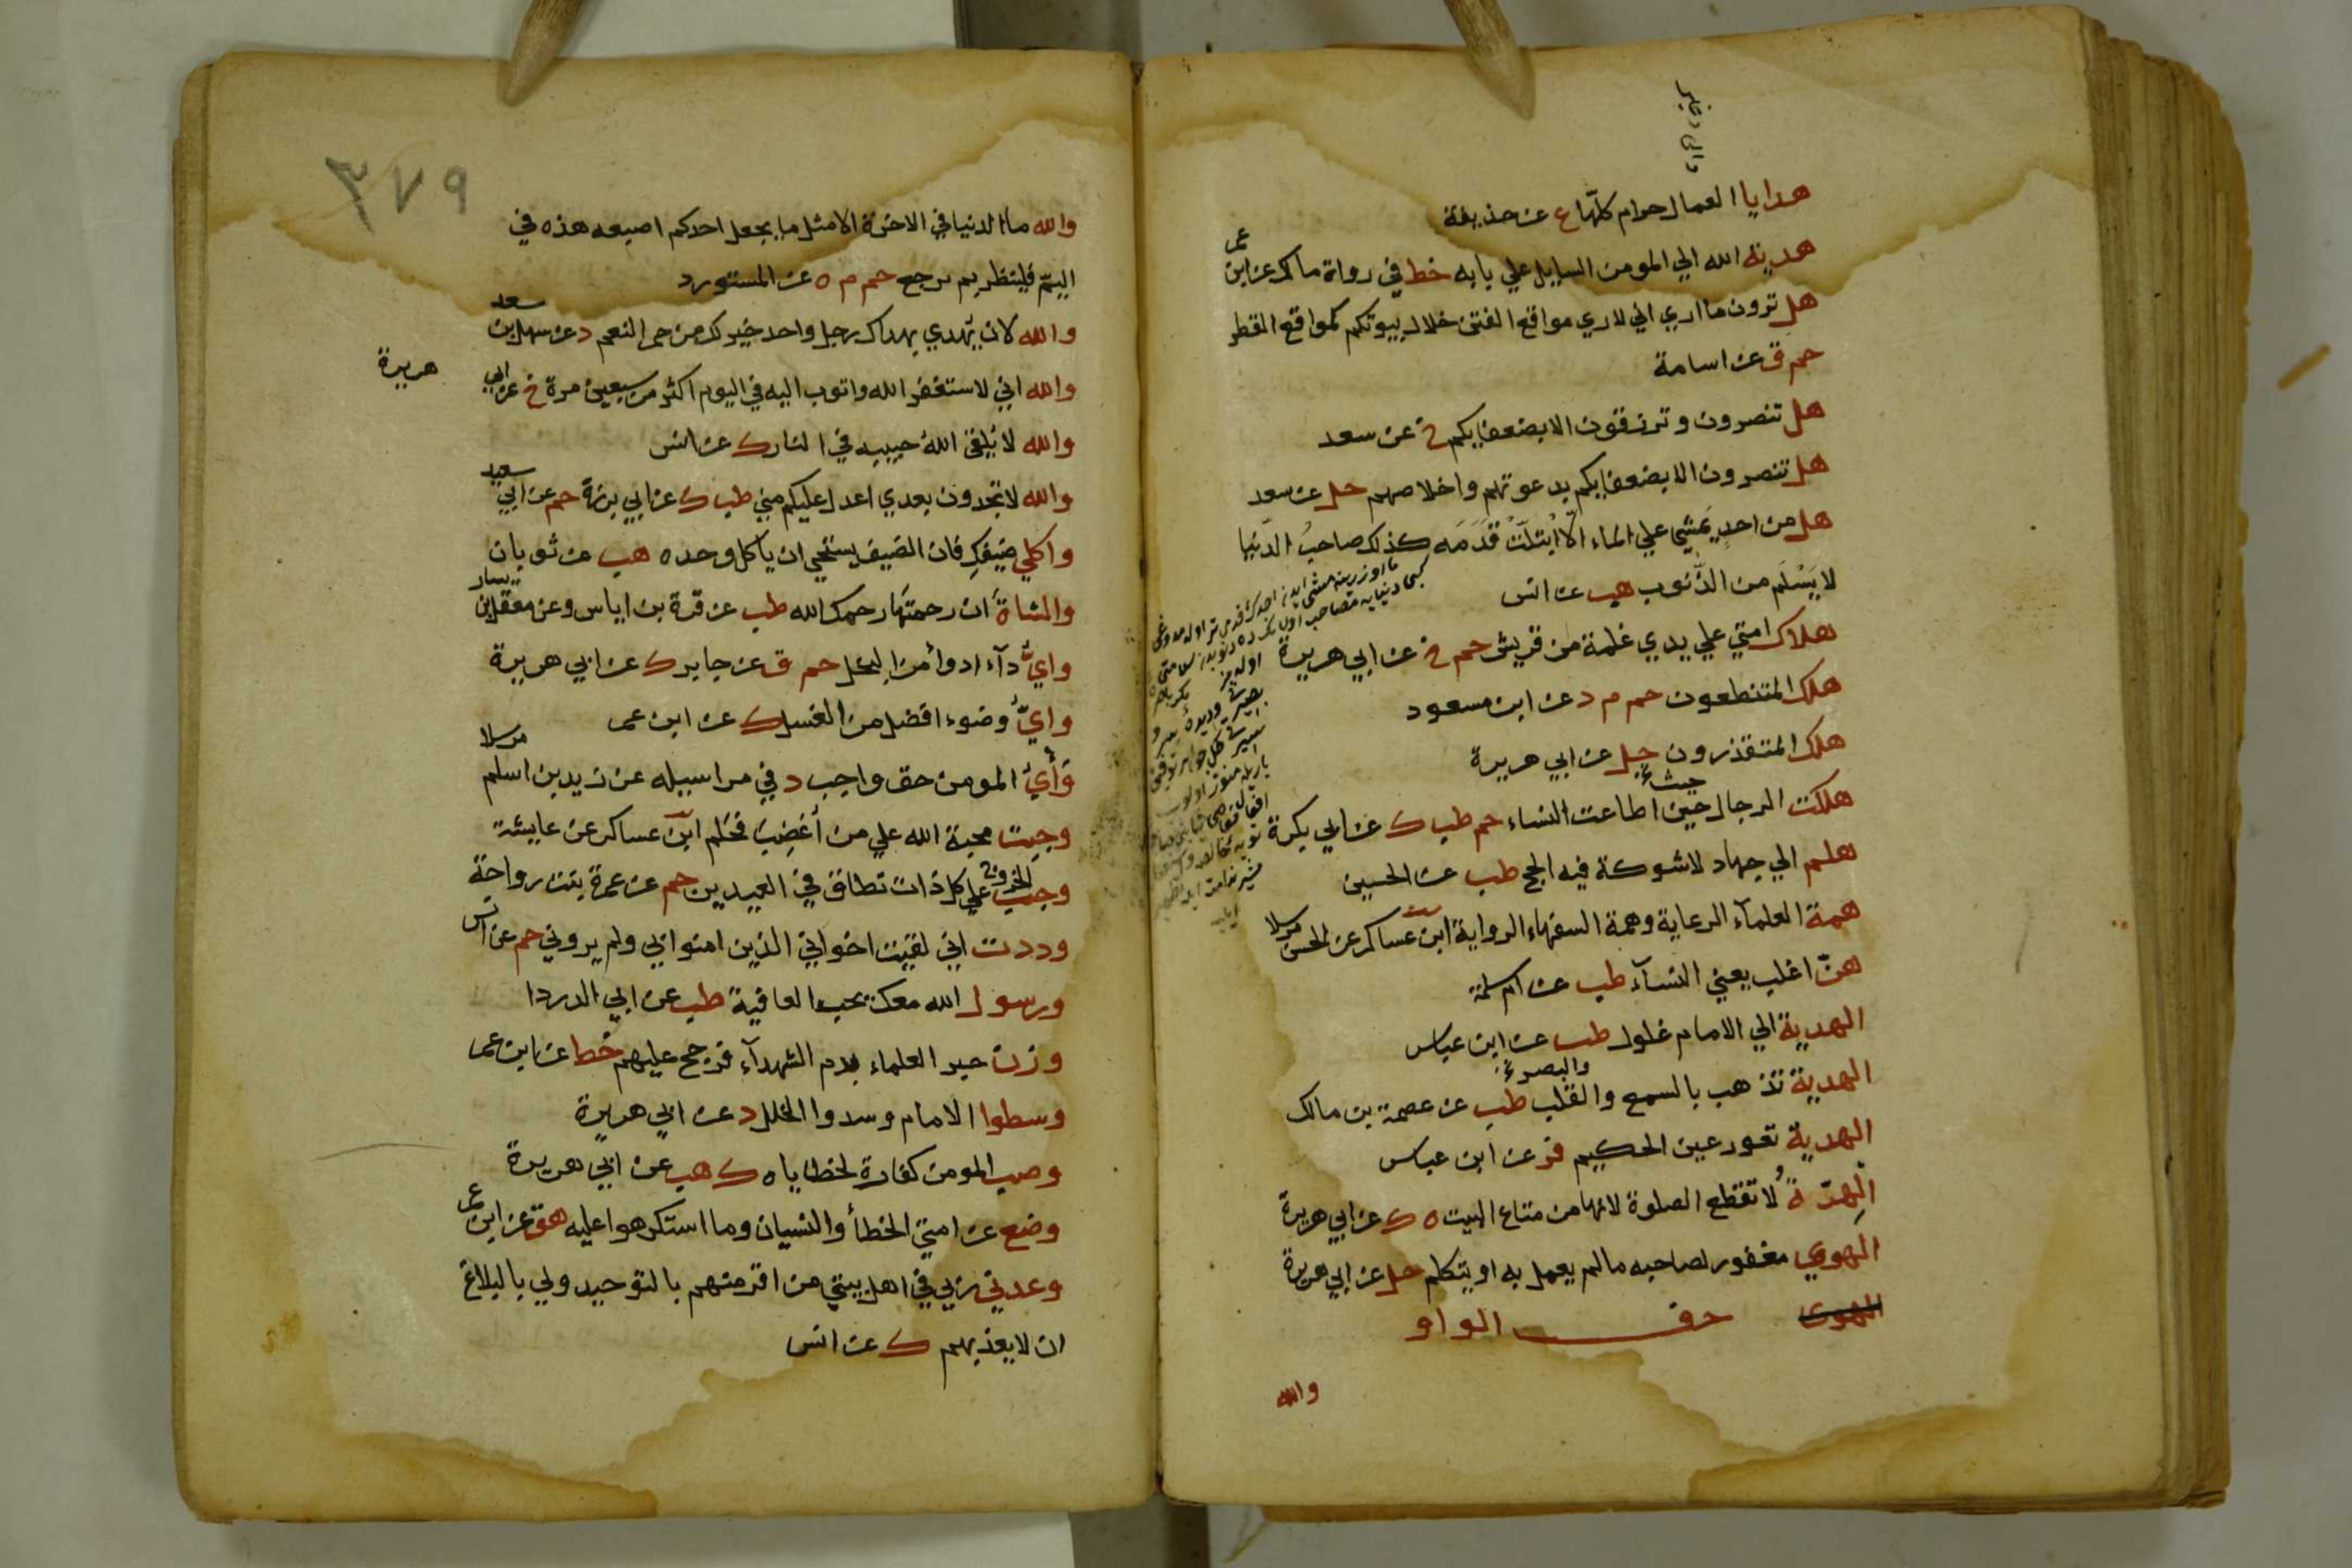 هدايا العمال حرام كلّها ع عن حذيفة
هدية الله الي المومن السايل علي بابه خط في رواة مالك عن ابن عمر
هل ترون ما اري اني لاري مواقع الفتن خلال بيوتكم كمواقع القطر
حم ق عن اسامة
هل تنصرون وترزقون الا بضعفايكم خ عن سعد
هل تنصرون الا بضعفايكم بدعوتهم واخلاصهم حل عن سعد
هل من احدٍ يَمشي علي الماء الّا ابْتلّتْ قَدَمَه كذلك صاحبُ الدّنيا
لا يَسْلَم من الذّنوب هب عن انس
هلاك امتي علي يدي غلمة من قريش حم خ عن ابي هريرة
هلك المتنطعون حم م د عن ابن مسعود
هلك المتقذرون حل عن ابي هريرة
هلكت الرجال حين اطاعت النساء حم طب ك عن ابي بكرة
حيث
هلم الي جهاد لا شوكة فيه الحج طب عن الحسين
همة العلمآء الرعاية وهمة السفهاء الرواية ابن عساكر عن الحسن مرسلا
هنّ اغلب يعني النسآء طب عن ام سلمة
الهدية الي الامام غلول طب عن ابن عباس
الهدية تذهب بالسمع والقلب طب عن عصمة بن مالك
والبصر
الهدية تعور عين الحكيم فر عن ابن عباس
الهِرّةُ لا تقطع الصلوة لانها من متاع البيت ه ك عن ابي هريرة
الهوي مغفور لصاحبه مالم يعمل به او يتكلم حل عن ابي هريرة
الهوى حرف الواو
والله
٣٧٩
والله ما الدنيا في الاخرة الا مثل ما يجعل احدكم اصبعه هذه في
اليمّ فلينظر بم يرجع حم م ه عن المستورد
والله لان يّهدي بهداك رجل واحد خير لك من حمر النعم د عن سهل بن سعد
والله اني لاستغفر الله واتوب اليه في اليوم اكثر من سبعين مرة خ عن ابي هريرة
والله لا يُلقي اللهُ حبيبه في النار ك عن انس
والله لا تجدون بعدي اعدل عليكم مني طب ك عن ابي برزة حم عن ابي سعيد
واكلي ضيفكِ فان الضيف يستحي ان ياكل وحده هب عن ثوبان
والشاةَ ان رحمتَها رحمك الله طب عن قرة بن اياس وعن معقل بن يسار
وايُّ دآء ادوأ من البخل حم ق عن جابر ك عن ابي هريرة
وايُّ وضوء افضل من الغسل ك عن ابن عمر
وَأْيُ المومن حق واجب د في مراسيله عن زيد بن اسلم مرسلا
وجبت محبة الله علي من أُغضِبَ فحَلم ابن عساكر عن عايشة
وجب الخروج علي كل ذات نطاق في العيدين حم عن عمرة بنت رواحة
وددت اني لقيت اخواني الذين امنوا بي ولم يروني حم عن انس
ورسول الله معك يحب العافية طب عن ابي الدردا
وزن حبر العلماء بدم الشهدآء فرجح عليهم خط عن ابن عمر
وسطوا الامام وسدوا الخلل د عن ابي هريرة
وصب المومن كفارة لخطاياه ك هب عن ابي هريرة
وضع عن امتي الخطأ والنسيان وما استكرهوا عليه هق عن ابن عمر
وعدني ربي في اهل بيتي من اقر منهم بالتوحيد ولي بالبلاغ
ان لا يعذبهم ك عن انس